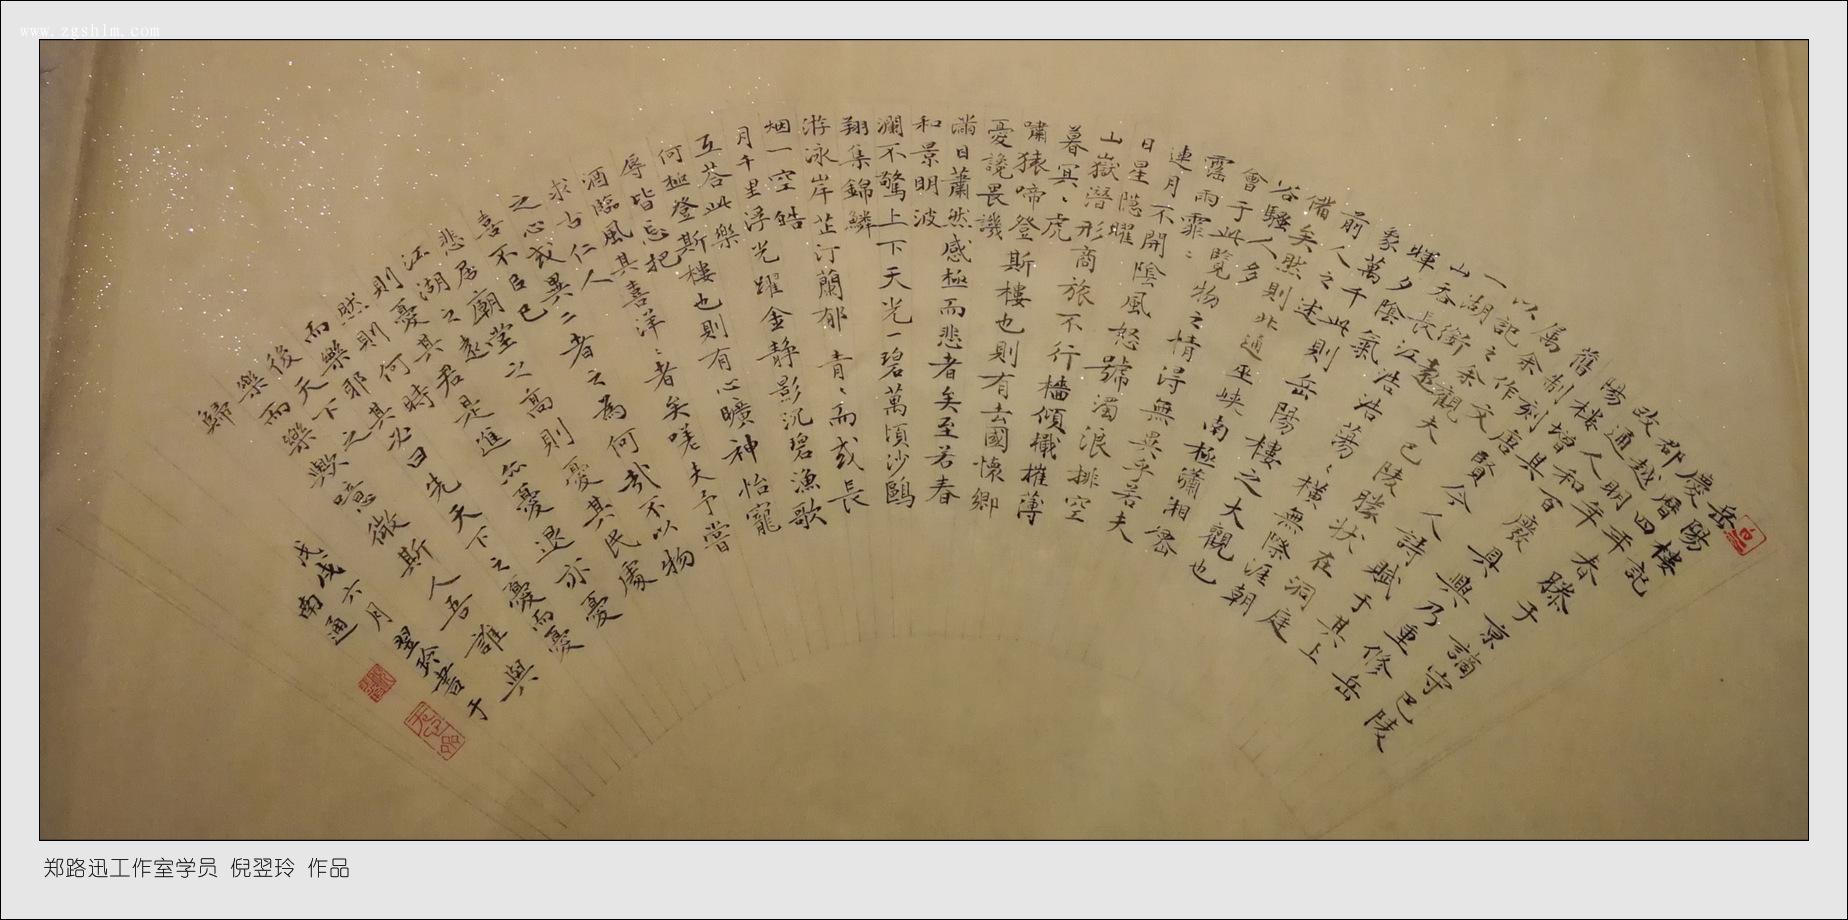 岳陽樓記
慶曆四年春滕子京謫守巴陵
郡越明年
政通人和百廢具興乃重修岳
陽樓增其
舊制刻唐賢今人詩賦于其上
屬余作文
以記之余觀夫巴陵勝狀在洞庭
一湖銜遠
山吞長江浩浩蕩〻橫無際涯朝
暉夕陰氣
象萬千此則岳陽樓之大觀也
前人之述
備矣然則北通巫峽南極瀟湘
騷人多
會于此覽物之情得無異乎若夫
霪雨霏〻
連月不開陰風怒號濁浪排空
日星隱曜
山嶽潛形商旅不行檣傾檝摧薄
暮冥〻虎
嘯猿啼登斯樓也則有去國懷鄉
憂讒畏譏
滿目蕭然感極而悲者矣至若春
和景明波
瀾不驚上下天光一碧萬頃沙鷗
翔集錦鱗
游泳岸芷汀蘭郁青〻而或長
烟一空皓
月千里浮光躍金靜影沉碧漁歌
互荅此樂
何極登斯樓也則有心曠神怡寵
辱皆忘把
酒臨風其喜洋〻者矣嗟夫予嘗
求古仁人
之心或異二者之為何哉不以物
喜不以己
悲居廟堂之高則憂其民處
江湖之遠
則憂其君是進亦憂退亦憂
然則何時
而樂耶其必曰先天下之憂而憂
後天下之
樂而樂歟噫微斯人吾誰與
歸
戊戌六月翌玲書于
南通
www.zgshlm.com
郑路迅工作室学员 倪翌玲 作品